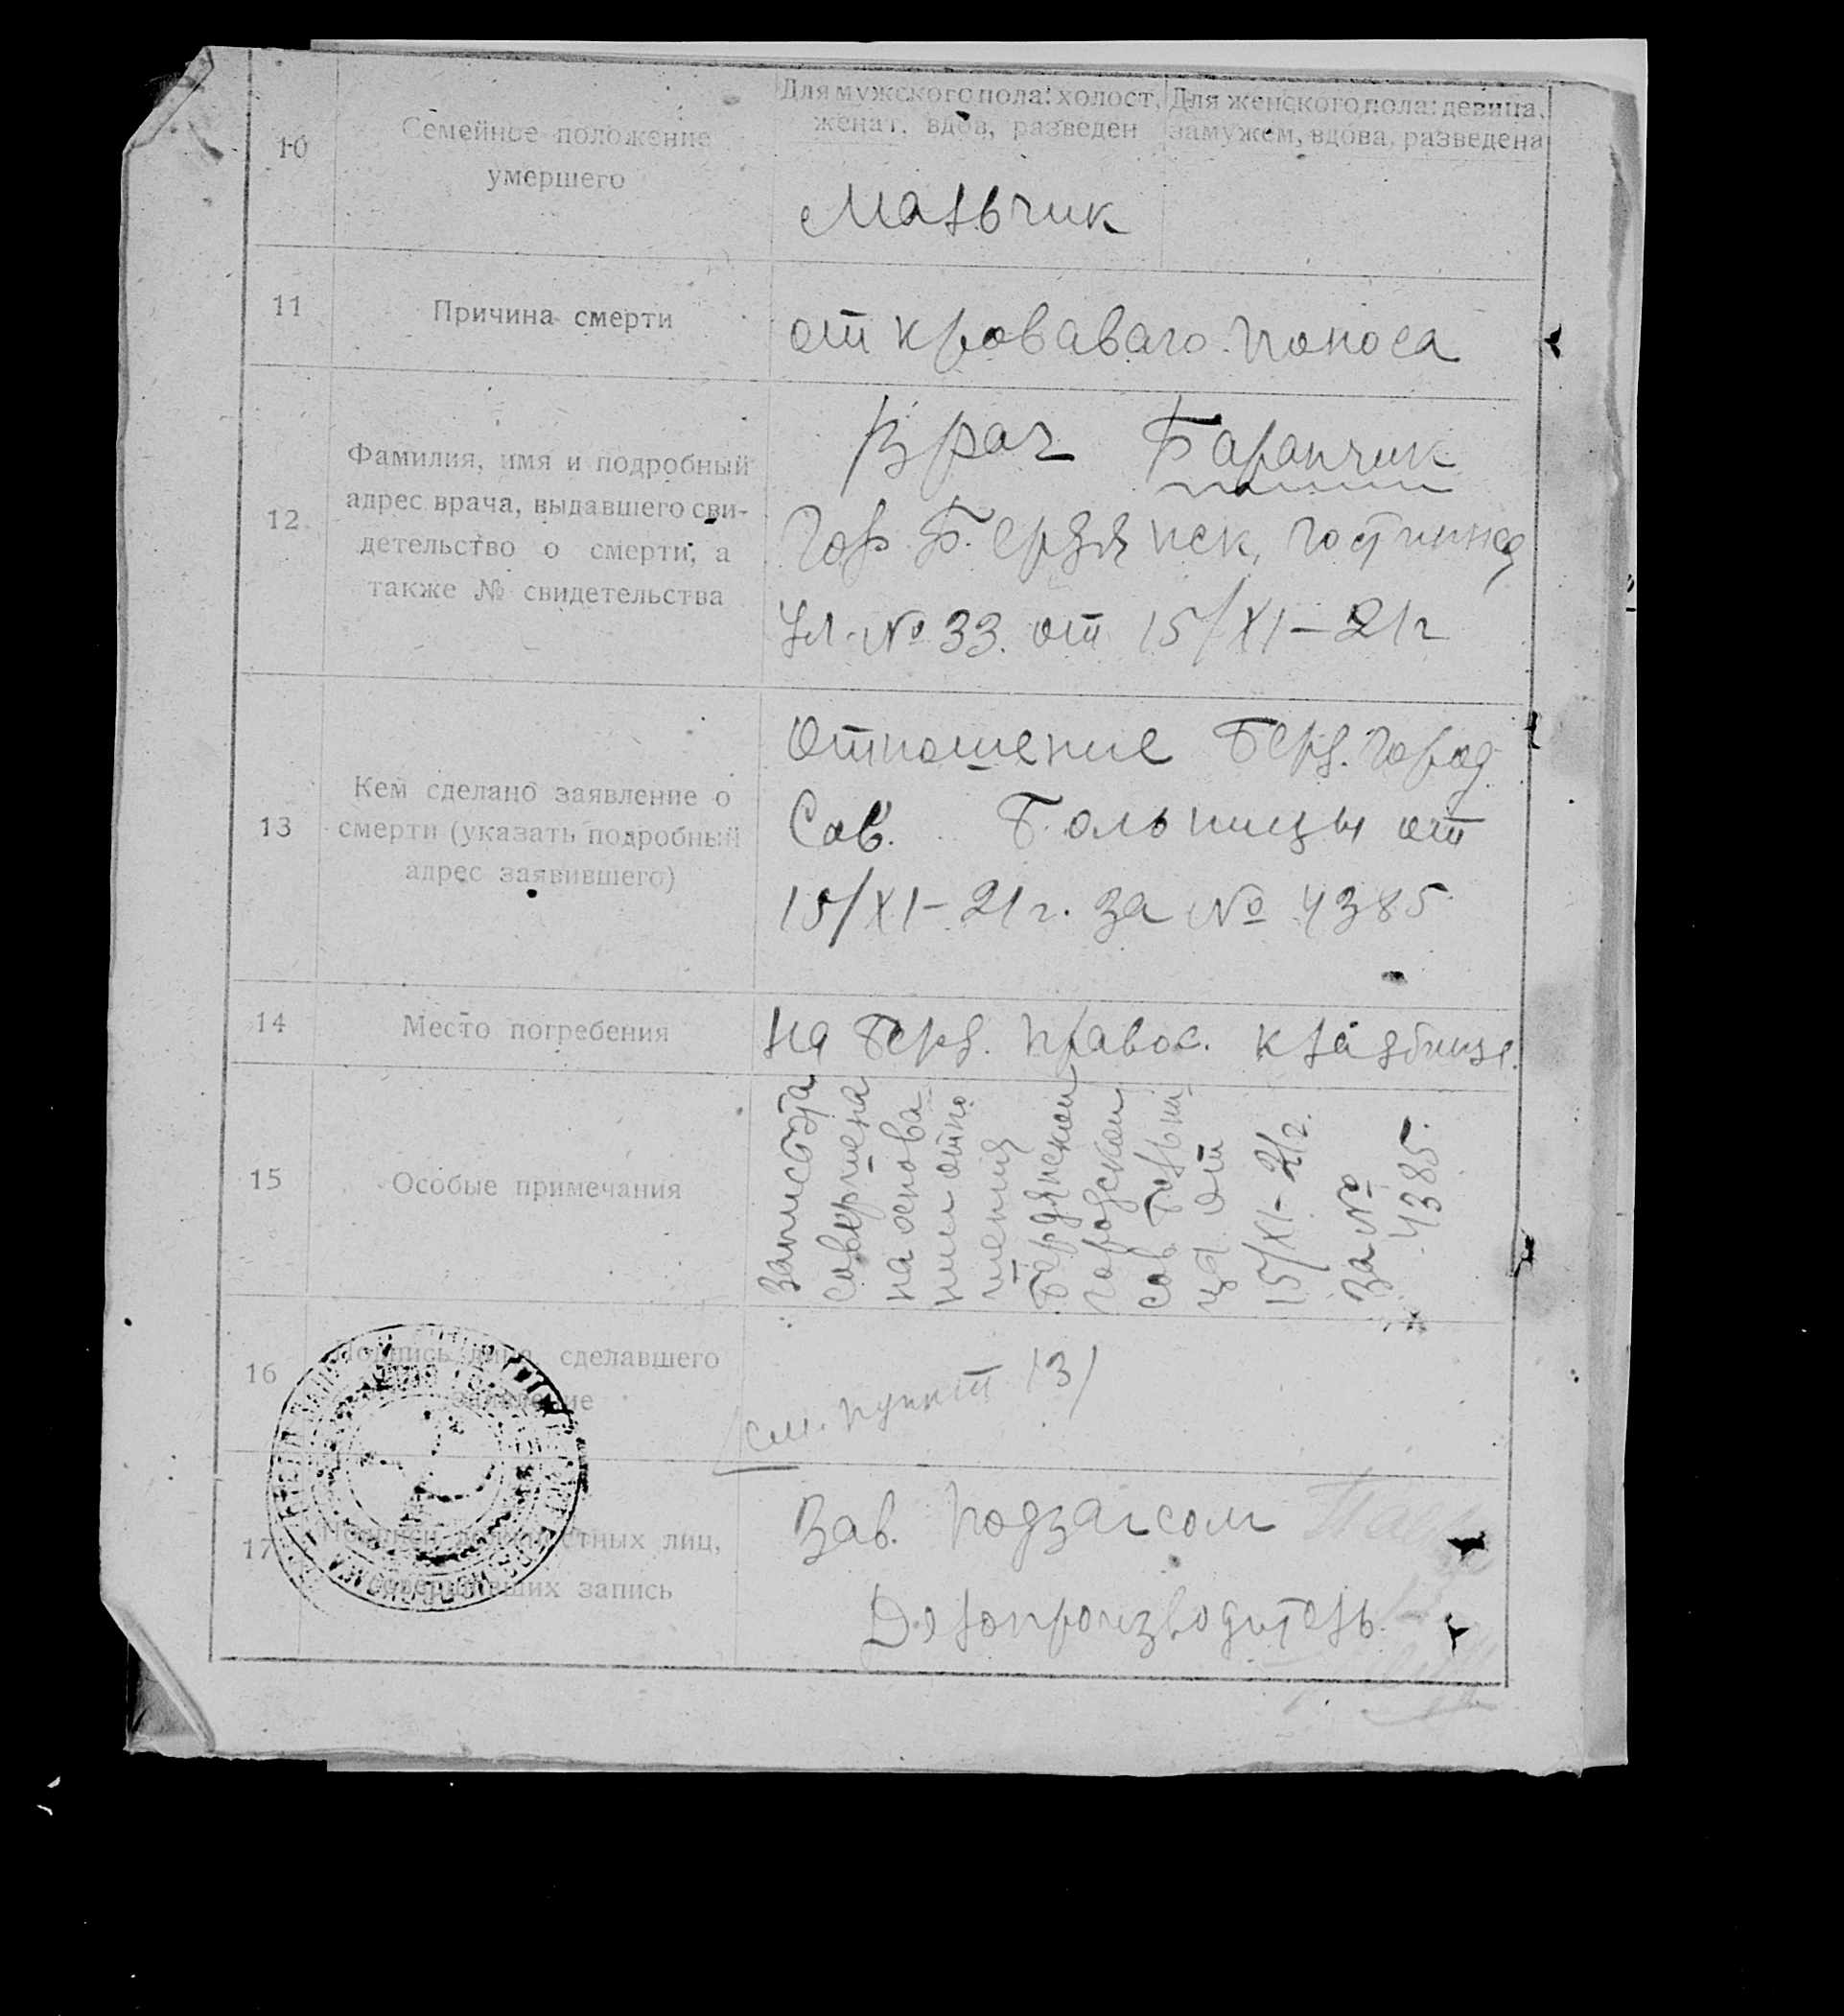 10
Семейное положение
умершего
Для мужского пола: холост,
женат, вдов, разведен
Для женского пола: девица,
замужем, вдова, разведена
Мальчик
11
Причина смерти
от кроваваго поноса
12
Фамилия, имя и подробный
адрес врача, выдавшего сви-
детельство о смерти, а
также № свидетельства
Врач Баранчик
Гор. Бердянск, Гостинная
ул. № 33. от 15/XI-21г
13
Кем сделано заявление о
смерти (указать подробный
адрес заявившего)
Отношение Берд. Город
Сов. Больницы от
15/XI-21г. за № 4385
14
Место погребения
на Берд. правос. кладбище.
15
Особые примечания
Запись эта
совершена
на основа
нии отно
шения
Бердянской
городской
сов больни
ца от
15/XI-21г.
за №
4385.
16
Подпись лица, сделавшего
заявление
/см. пункт 13/
17
Подписи должностных лиц,
совершивших запись
Зав. подзагсом
Делопроизводитель